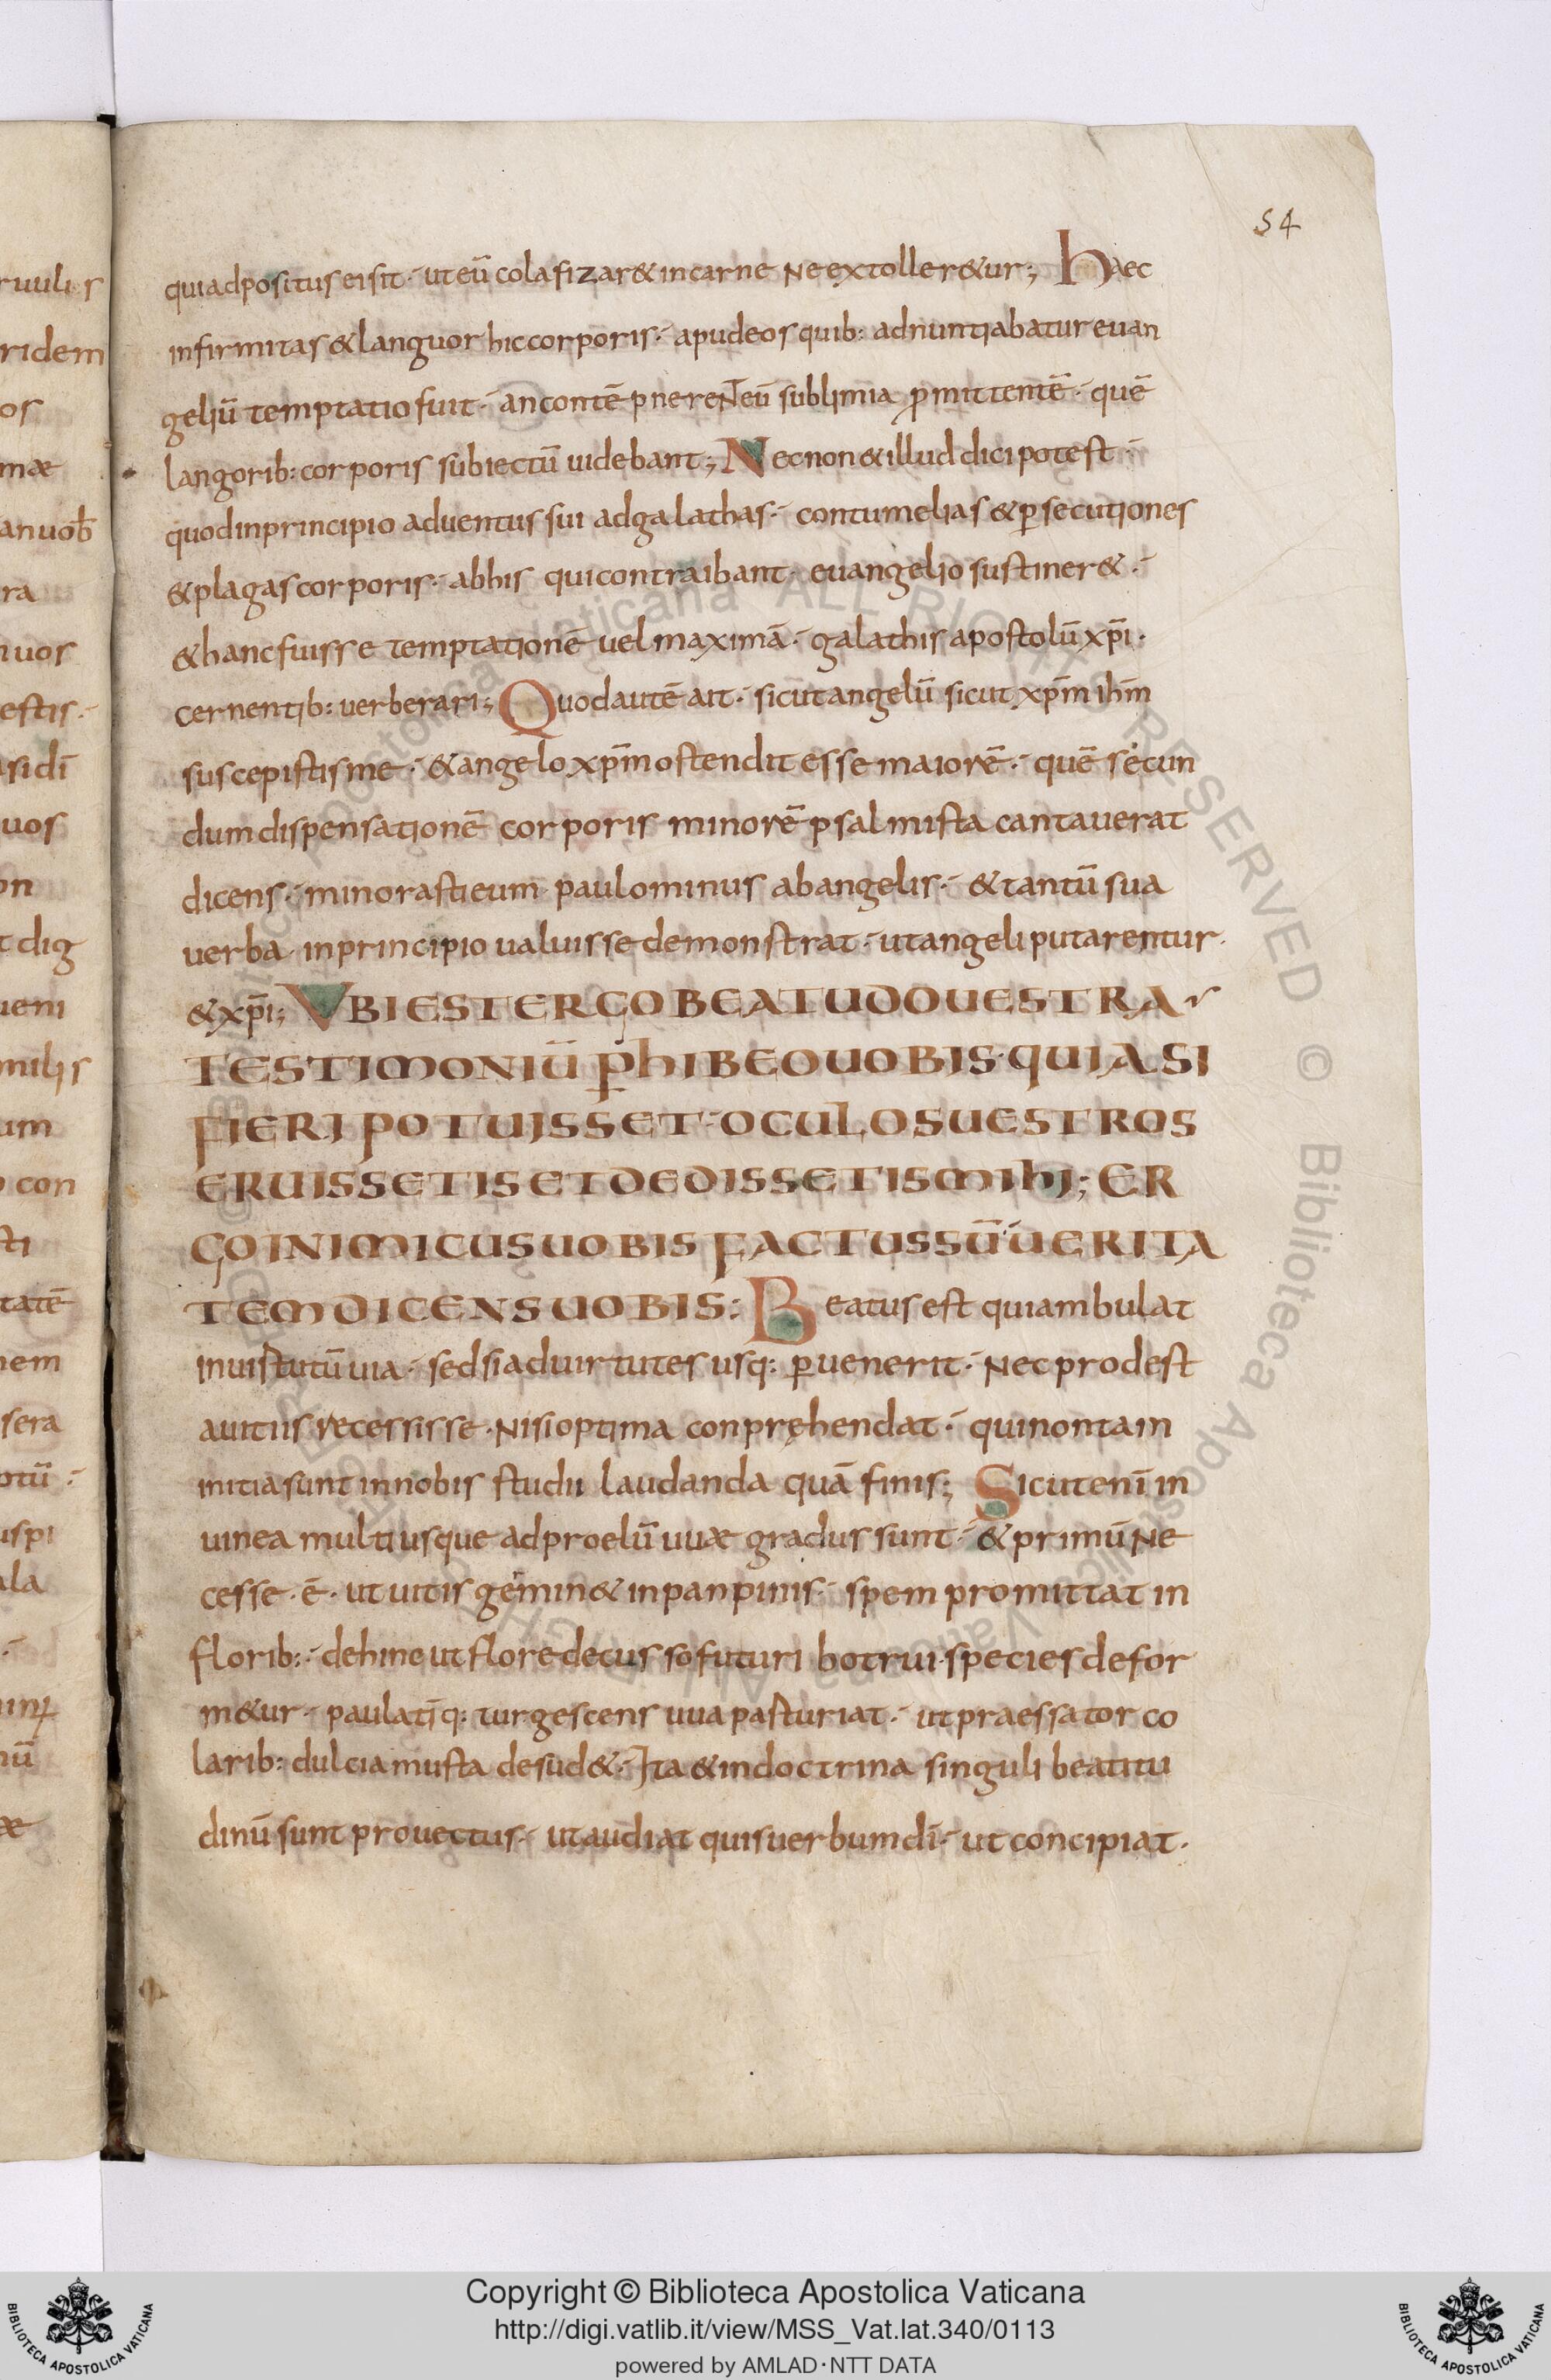 54
qui adpositus ei sit · ut eū colafizar& in carne Ne extoller&ur; Haec
infirmitas & languor hic corporis · apud eos quib: adnuntiabatur euan
geliū temptatio fuit · an contēpnereNt eū sublimia ꝓmittentē · quē
langorib: corporis subiectū uidebant; Nec non & illud dici potest ·
quod in principio aduentus sui ad galathas · contumelias & ꝑsecutiones
& plagas corporis · ab his qui contraibant · euangelio sustiner& ·
& hanc fuisse temptationē uel maximā · galathis apostolū xp̄i ·
cernentib: uerberari; Quod autē ait · sicut angelū sicut xp̄m ih̄m
suscepistis me · & angelo xp̄m ostendit esse maiorē · quē secun
dum dispensationē corporis minorē psalmista cantauerat
dicens · minorasti eum paulo minus ab angelis · & tantū sua
uerba in principio ualuisse demonstrat · ut angeli putarentur ·
& xp̄i; VBI EST ERGO BEATUDO UESTRA
TESTIMONIŪ ꝑhIBEO UOBIS · QUIA SI
FIERI POTUISSET · OCULOS UESTROS
ERUISSETIS ET DEDISSETIS MIhI; ER
GO INIMICUS UOBIS FACTUS SŪ UERITA
TEM DICENS UOBIS: Beatus est qui ambulat
in uistutū uia · sed si ad uirtutes usq: ꝑuenerit · Nec prodest
a uitiis recessisse · Nisi optima conpręhendat · qui non tam
initia sunt in nobis studii laudanda quā finis; Sicut enī in
uinea multi usque ad proelū uuæ gradus sunt · & primū Ne
cesse · ē · ut uitis gemin& in panpinis · spem promittat in
florib: · dehinc ut flore decusso futuri botrui · species defor
m&ur · paulatī q: turgescens uua pasturiat · ut praessa torco
larib: dulcia musta desud& · Ita & in doctrina singuli beatitu
dinū sunt prouectus · ut audiat quis uerbum dī · ut concipiat ·
ruulis
ridem
os
mæ
ra
uos
estis ·
uos
t dig
ueni
milis
um
con
tatē
nem
sera
uspi
ala
Copyright © Biblioteca Apostolica Vaticana
http://digi.vatlib.it/view/MSS_Vat.lat.340/0113
powered by AMLAD·NTT DATA
BIBLIOTECA APOSTOLICA VATICANA
BIBLIOTECA APOSTOLICA VATICANA